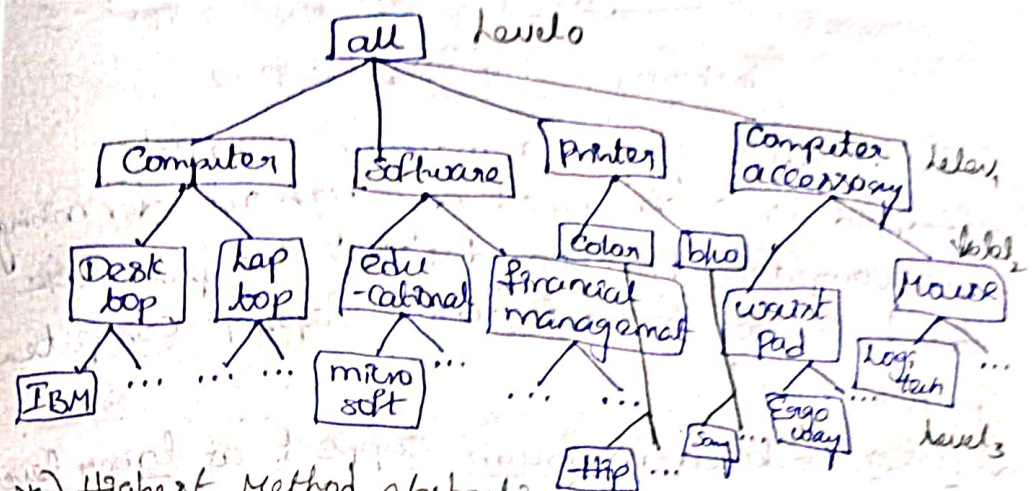 all Level 0
Computer
Software
printer
Computer
accessory
Desk
top
Lap
top
edu
-cational
financial
management
Color
b/w
wrist
pad
Mouse
IBM
...
...
...
micro
soft
...
...
...
Hp
...
Sony
...
Ergo
way
...
Logi
tech
...
Level 3
Highest Method